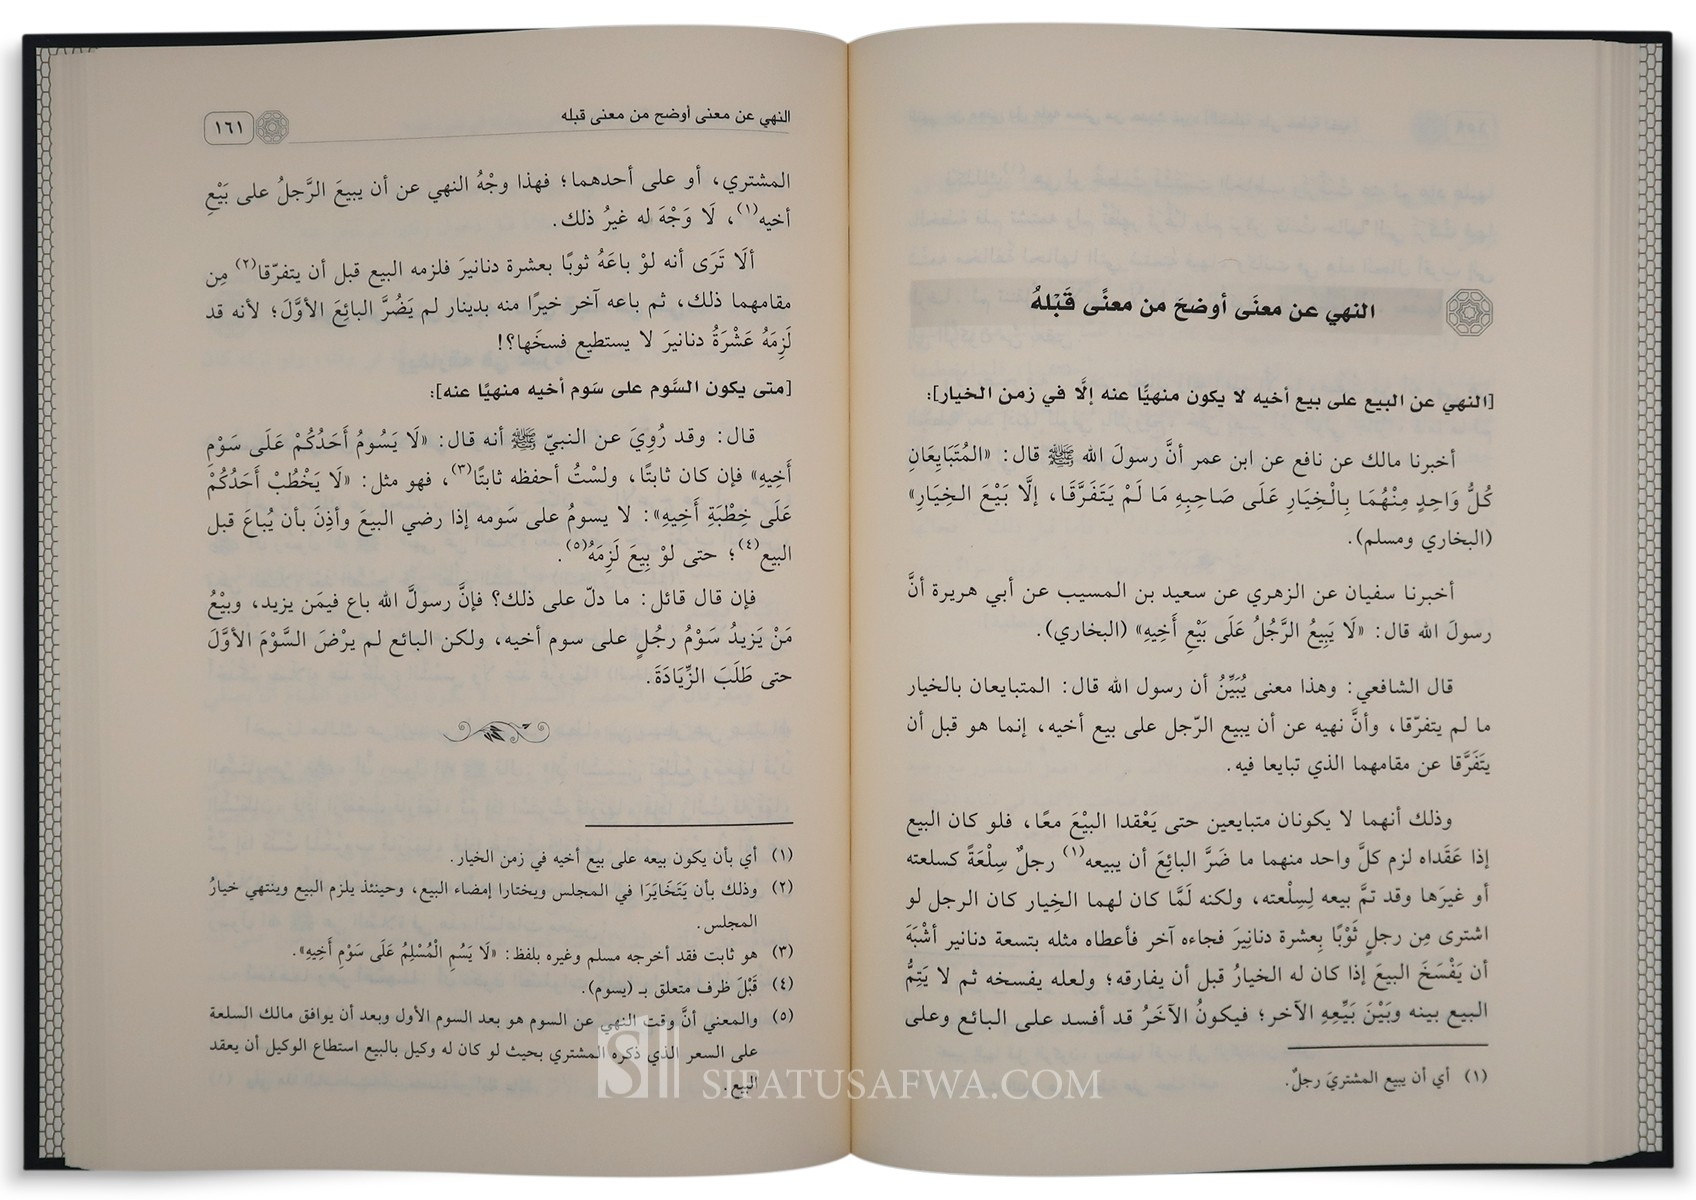 النهي عن معنَى أوضحَ من معنًى قَبْلهُ
[النهي عن البيع على بيع أخيه لا يكون منهيًّا عنه إلَّا في زمن الخيار]:
أخبرنا مالك عن نافع عن ابن عمر أنَّ رسولَ الله ﷺ قال: «المُتَبَايِعَانِ
كُلُّ وَاحِدٍ مِنْهُمَا بِالْخِيَارِ عَلَى صَاحِبِهِ مَا لَمْ يَتَفَرَّقَا، إلَّا بَيْعَ الخِيَارِ»
(البخاري ومسلم).
أخبرنا سفيان عن الزهري عن سعيد بن المسيب عن أبي هريرة أنَّ
رسولَ الله قال: «لَا يَبِيعُ الرَّجُلُ عَلَى بَيْعِ أَخِيهِ» (البخاري).
قال الشافعي: وهذا معنى يُبَيِّنُ أن رسول الله قال: المتبايعان بالخيار
ما لم يتفرّقا، وأنَّ نهيه عن أن يبيع الرّجل على بيع أخيه، إنما هو قبل أن
يتَفَرَّقا عن مقامهما الذي تبايعا فيه.
وذلك أنهما لا يكونان متبايعين حتى يَعْقدا البيْعَ معًا، فلو كان البيع
إذا عَقَداه لزم كلَّ واحد منهما ما ضَرَّ البائِعَ أن يبيعه(١) رجلٌ سِلْعَةً كسلعته
أو غيرَها وقد تمَّ بيعه لِسِلْعته، ولكنه لَمَّا كان لهما الخِيار كان الرجل لو
اشترى مِن رجلٍ ثَوْبًا بِعشرة دنانِيرَ فجاءه آخر فأعطاه مثله بتسعة دنانير أشْبَهَ
أن يَفْسَخَ البيعَ إذا كان له الخيارُ قبل أن يفارقه؛ ولعله يفسخه ثم لا يَتِمُّ
البيع بينه وبَيْنَ بَيِّعِهِ الآخر؛ فيكونُ الآخَرُ قد أفسد على البائع وعلى
(١) أي أن يبيع المشتريَ رجلٌ.
النهي عن معنى أوضح من معنى قبله
١٦١
المشتري، أو على أحدهما؛ فهذا وجْهُ النهي عن أن يبيعَ الرَّجلُ على بَيْعِ
أخيه(١)، لَا وَجْهَ له غيرُ ذلك.
ألَا تَرَى أنه لوْ باعَهُ ثوبًا بعشرة دنانيرَ فلزمه البيع قبل أن يتفرّقا(٢) مِن
مقامهما ذلك، ثم باعه آخر خيرًا منه بدينار لم يَضُرَّ البائِعَ الأوَّلَ؛ لأنه قد
لَزِمَهُ عَشْرَةُ دنانيرَ لا يستطيع فسخَها؟!
[متى يكون السَّوم على سَوم أخيه منهيًا عنه]:
قال: وقد رُوِيَ عن النبيّ ﷺ أنه قال: «لَا يَسُومُ أَحَدُكُمْ عَلَى سَوْمِ
أَخِيهِ» فإن كان ثابتًا، ولسْتُ أحفظه ثابتًا(٣)، فهو مثل: «لَا يَخْطُبْ أَحَدُكُمْ
عَلَى خِطْبَةِ أَخِيهِ»: لا يسومُ على سَومه إذا رضي البيعَ وأذِنَ بأن يُباعَ قبل
البيع(٤)؛ حتى لوْ بِيعَ لَزِمَهُ(٥).
فإن قال قائل: ما دلّ على ذلك؟ فإنَّ رسولَ الله باع فيمَن يزيد، وبيْعُ
مَنْ يَزيدُ سَوْمُ رجُلٍ على سوم أخيه، ولكن البائع لم يرْضَ السَّوْمَ الأوَّلَ
حتى طَلَبَ الزِّيَادَةَ.
(١) أي بأن يكون بيعه على بيع أخيه في زمن الخيار.
(٢) وذلك بأن يَتَخَايَرَا في المجلس ويختارا إمضاء البيع، وحينئذ يلزم البيع وينتهي خيارُ
المجلس.
(٣) هو ثابت فقد أخرجه مسلم وغيره بلفظ: «لَا يَسُمِ الْمُسْلِمُ عَلَى سَوْمِ أَخِيهِ».
(٤) قَبْلَ ظرف متعلق بـ (يسوم).
(٥) والمعني أنَّ وقت النهي عن السوم هو بعد السوم الأول وبعد أن يوافق مالك السلعة
على السعر الذي ذكره المشتري بحيث لو كان له وكيل بالبيع استطاع الوكيل أن يعقد
البيع.
SIFATUSAFWA.COM